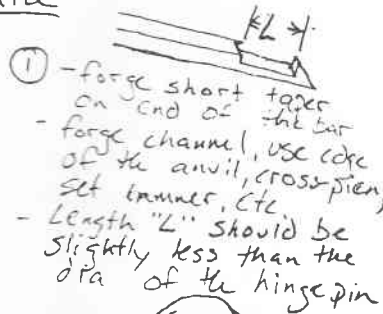 L
① - forge short taper
on end of the bar
- forge channel, use edge
of the anvil, cross-pien,
set hammer, etc
- Length "L" should be
slightly less than the
dia of the hinge pin